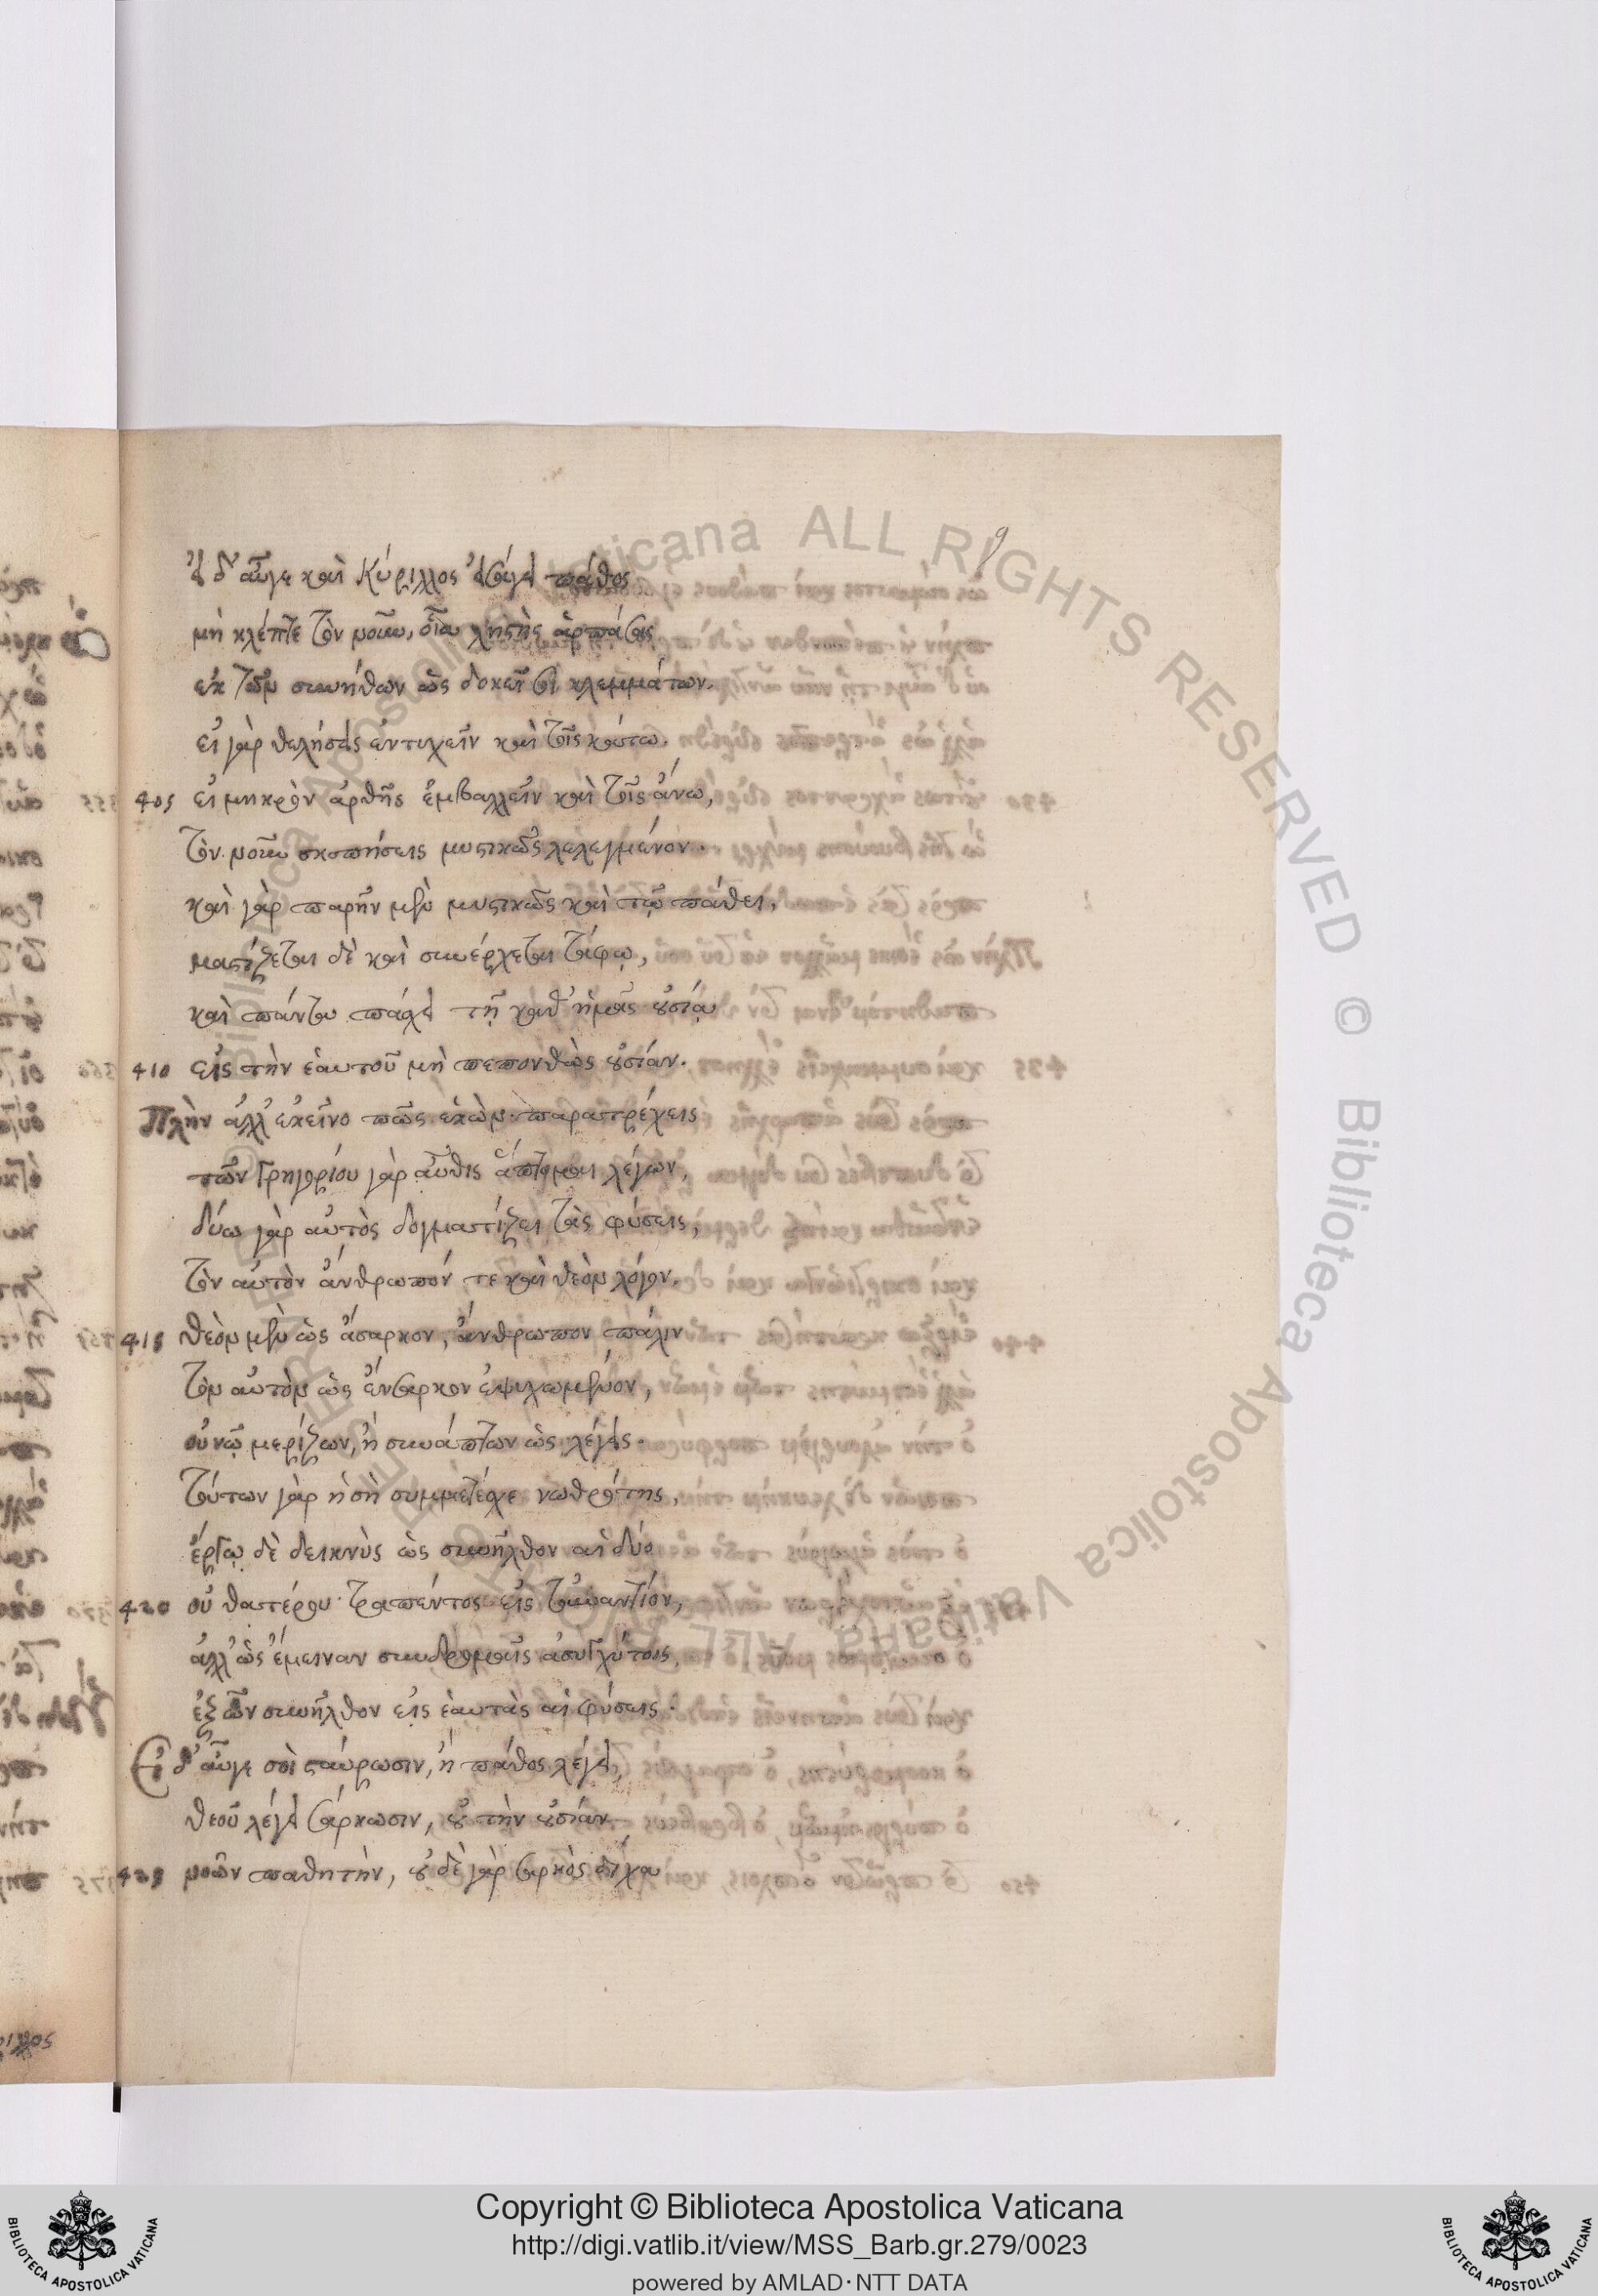 9
εἰ δ' αὖγε καὶ Κύριλλος εἰσάγει πάθος
μὴ κλέπτε τὸν νοῦν, οἷα λῃστὴς ἁρπάσας
ἐκ τῶν συνήθων ὡς δοκεῖ σοι κλεμμάτων.
εἰ γὰρ θελήσεις ἐντυχεῖν καὶ τοῖς κάτω.
405 εἰ μικρὸν ἀρθῇς ἐμβαλλεῖν καὶ τοῖς ἄνω,
τὸν νοῦν σκοπήσεις μυστικῶς λελεγμένον.
καὶ γὰρ παρῆν μὲν μυστικῶς καὶ τῷ πάθει,
μαστίζεται δὲ καὶ συνέρχεται τάφῳ,
καὶ πάντα πάσχει τῇ καθ' ἡμᾶς οὐσίᾳ
410 εἰς τὴν ἑαυτοῦ μὴ πεπονθὼς οὐσίαν.
Πλὴν ἀλλ' ἐκεῖνο πῶς ἑκὼν παρατρέχεις
τῶν Γρηγορίου γὰρ αὖθις ἅπτομαι λέγων,
δύω γὰρ αὐτὸς δογματίζει τὰς φύσεις,
τὸν αὐτὸν ἄνθρωπόν τε καὶ θεὸν λόγον.
415 θεὸν μὲν ὡς ἄσαρκον, ἄνθρωπον πάλιν
τὸν αὐτὸν ὡς ἔνσαρκον ἐψιλωμένον,
οὐ νῷ μερίζων, ἢ συνάπτων ὡς λέγεις.
τούτων γὰρ ἡ σὴ συμμετέσχε νωθρότης,
ἔργῳ δὲ δεικνὺς ὡς συνῆλθον αἱ δύο
420 οὐ θατέρου τραπέντος εἰς τοὐναντίον,
ἀλλ' ὡς ἔμειναν συνδρομαῖς ἀσυγχύτοις,
ἐξ ὧν συνῆλθον εἰς ἑαυτὰς αἱ φύσεις.
Εἰ δ' αὖγε σοὶ σταύρωσιν, ἢ πάθος λέγει,
θεοῦ λέγει σάρκωσιν, οὐ τὴν οὐσίαν
425 νοῶν παθητὴν, οὐδὲ γὰρ σαρκὸς δίχα
Copyright © Biblioteca Apostolica Vaticana
http://digi.vatlib.it/view/MSS_Barb.gr.279/0023
powered by AMLAD·NTT DATA